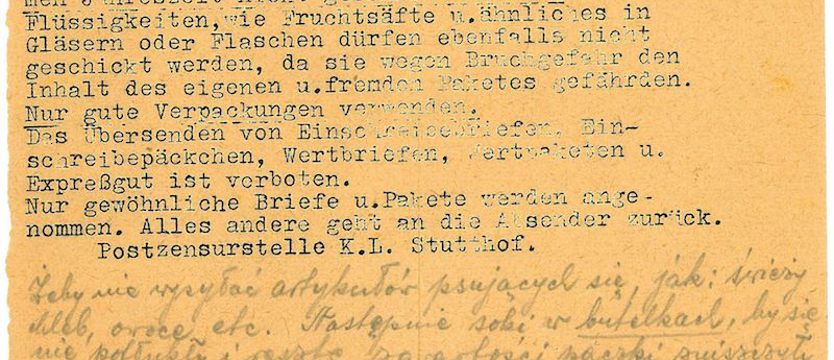 Flüssigkeiten,wie Fruchtsäfte u.ähnliches in
Gläsern oder Flaschen dürfen ebenfalls nicht
geschickt werden, da sie wegen Bruchgefahr den
Inhalt des eigenen u.fremden Paketes gefährden.
Nur gute Verpackungen verwenden.
Das Übersenden von Einschreibebriefen, Ein-
schreibepäckchen, Wertbriefen, Wertpaketen u.
Expreßgut ist verboten.
Nur gewöhnliche Briefe u.Pakete werden ange-
nommen. Alles andere geht an die Absender zurück.
Postzensurstelle K.L. Stutthof.
Żeby nie wysyłać artykułów psujących się, jak: świeży
chleb, owoce etc. Następnie soki w butelkach, by się
nie potłukły i reszty zawartości paczki